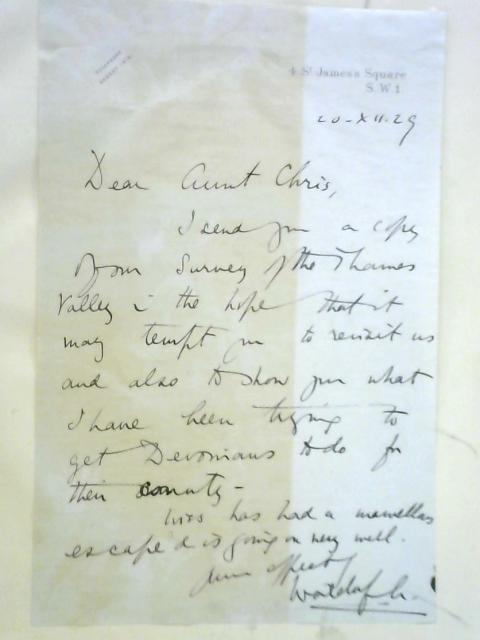 4 St James's Square
S.W.1.
20-XII.29
Dear Aunt Chris,
I send you a copy
of our Survey of the Thames
Valley in the hope that it
may tempt you to revisit us
and also to show you what
I have been trying to
get Devonians to do for
their county -
has had a marvellous
escape & is going on very well.
Your affect